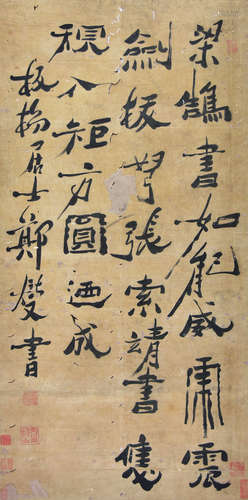 梁鵠書如龍威虎震
劍拔弩張索靖書
規入矩方圓迺成
板橋居士鄭燮書